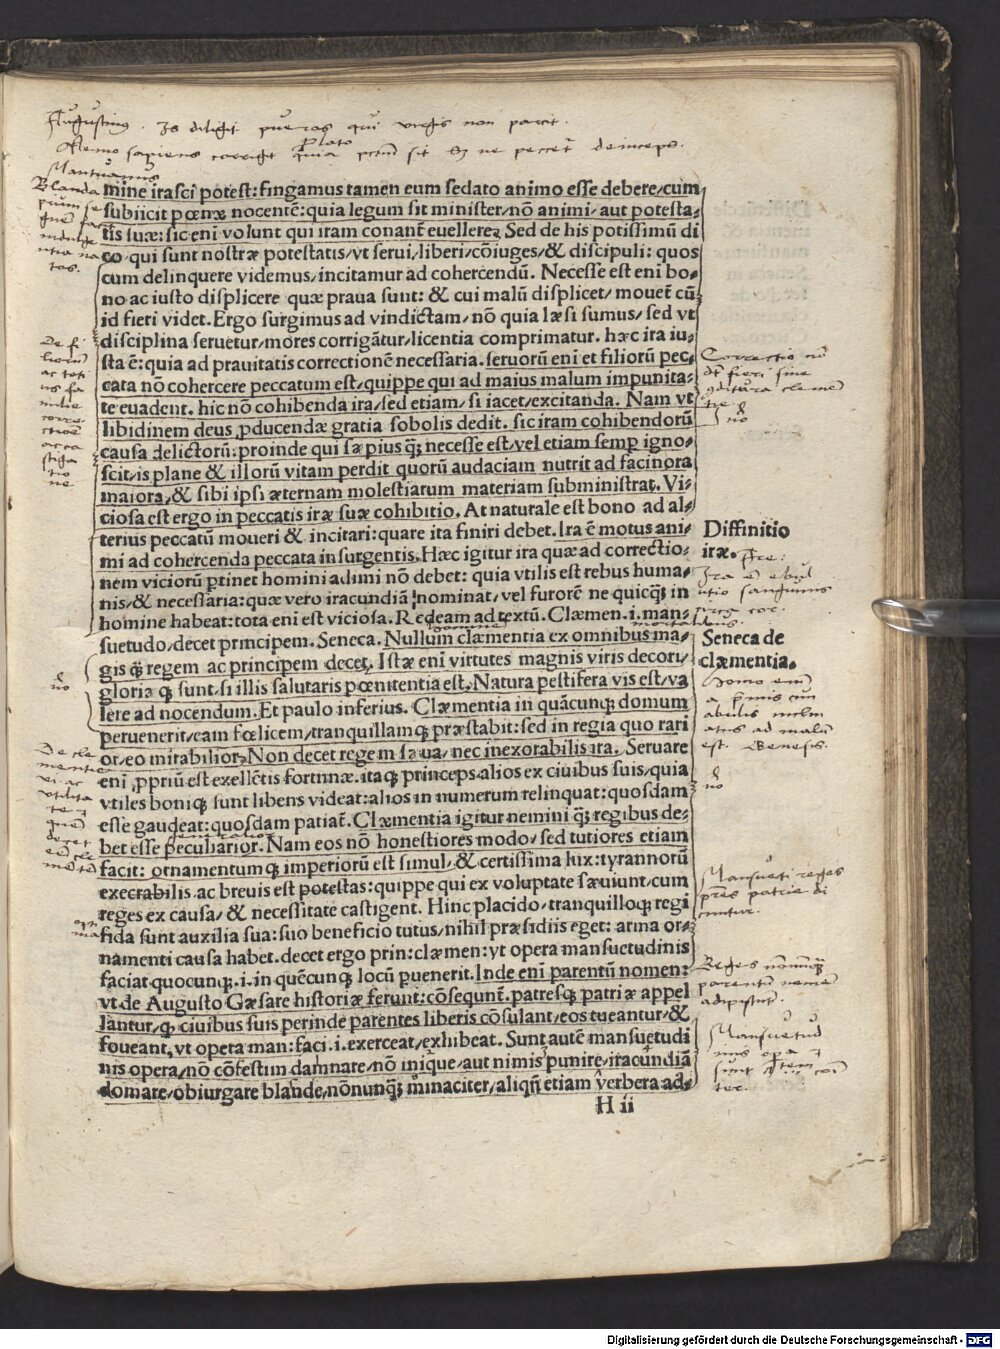 Augustinus. Is diligit pueros qui virgis non parcit.
Nemo sapiens corrigit quia pctm sit sz ne peccet deinceps.
Plato
Mantuanus
Blanda
pium
mine irasci potest: fingamus tamen eum sedato animo esse debere/cum
subiicit pœnæ nocentē: quia legum sit minister/nō animi/ aut potesta/
tis suæ: sic enī volunt qui iram conant̄ euellere. Sed de his potissimū di
co/ qui sunt nostræ potestatis/vt serui/liberi/cōiuges/& discipuli: quos
cum delinquere videmus/incitamur ad cohercendū. Necesse est enī bo/
no ac iusto displicere quæ praua sunt: & cui malū displicet/ mouet̄ cū
id fieri videt. Ergo surgimus ad vindictam/ nō quia læsi sumus/ sed vt
disciplina seruetur/mores corrigāt̄ur/licentia comprimatur. hæc ira iu/
sta ē: quia ad prauitatis correctionē necessaria. seruorū enī et filiorū pec/
cata nō cohercere peccatum est/quippe qui ad maius malum impunita/
te euadent. hic nō cohibenda ira/sed etiam/ si iacet/excitanda. Nam vt
libidinem deus ꝓducendæ gratia sobolis dedit. sic iram cohibendorū
causa delictorū: proinde qui sæpius q̃ȝ necesse est/vel etiam semꝑ igno/
scit/is plane & illorū vitam perdit quorū audaciam nutrit ad facinora
maiora/& sibi ipsi æternam molestiarum materiam subministrat. Vi/
ciosa est ergo in peccatis iræ suæ cohibitio. At naturale est bono ad al/
terius peccatū moueri & incitari: quare ita finiri debet. Ira ē motus ani/
mi ad cohercenda peccata insurgentis. Hæc igitur ira quæ ad correctio/
nem viciorū ꝑtinet homini adimi nō debet: quia vtilis est rebus huma/
nis/& necessaria: quæ vero iracundiā nominat/vel furorē ne quicq̃ȝ in
homine habeat: tota eni est viciosa. Redeam ad textū. Clæmen.i.man/
suetudo/decet principem. Seneca. Nullum clæmentia ex omnibus ma/
gis q̃ȝ regem ac principem decet. Istæ enī virtutes magnis viris decori/
gloriæ qȝ sunt/si illis salutaris pœnitentia est. Natura pestifera vis est/va
lere ad nocendum. Et paulo inferius. Clæmentia in quācunqȝ domum
peruenerit/eam fœlicem/tranquillamqȝ præstabit: sed in regia quo rari
or/eo mirabilior. Non decet regem sæua/ nec inexorabilis ira. Seruare
enī ꝓpriū est exellētis fortunæ. itaqȝ princeps alios ex ciuibus suis/quia
vtiles boniqȝ sunt libens videat: alios in numerum relinquat: quosdam
esse gaudeat: quosdam patiat̄. Clæmentia igitur nemini q̃ȝ regibus de/
bet esse peculiarior. Nam eos nō honestiores modo/ sed tutiores etiam
facit: ornamentumqȝ imperiorū est simul/& certissima lux: tyrannorū
execrabilis ac breuis est potestas: quippe qui ex voluptate sæuiunt/cum
reges ex causa/ & necessitate castigent. Hinc placido/tranquilloqȝ regi
fida sunt auxilia sua: suo beneficio tutus/nihil præsidiis eget: arma or/
namenti causa habet. decet ergo prin: clæmen: vt opera mansuetudinis
faciat quocunqȝ.i.in quēcunqȝ locū ꝑuenerit. Inde enī parentū nomen:
vt de Augusto Cæsare historiæ ferunt: cōsequnt̄. patresqȝ patriæ appel
lantur/qȝ ciuibus suis perinde parentes liberis cōsulant/eos tueantur/&
foueant. vt opera man: faci.i.exerceat/exhibeat. Sunt autē mansuetudi
nis opera/nō cōfestim damnare/nō inique/aut nimis punire/iracundiā
domare/obiurgare blande/nōnunq̃ȝ minaciter/aliqn̄ etiam verbera ad/
H ii
De fi
liorum
ac toti
us fa
milie
corre
ctione
ac ca
stiga
tio
ne
Correctio nō
dt fieri sine
Diffinitio
iræ.
Ira ē ebul
litio sanguinis
circa cor.
Seneca de
clæmentia.
Homo enim
a primis cun
abulis incli
atus ad malū
est. Genesis.
De cle
mentie
vi ac
vtilita
te
Mansueti reges
pres patrie di
cuntur.
Reges nonnūqȝ
parentū nomen
adipiscunt̄.
Mansuetud
inis opera
sunt
Digitalisierung gefördert durch die Deutsche Forschungsgemeinschaft - DFG